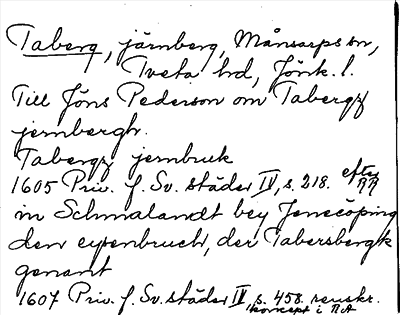 Taberg, järnberg, Månsarps sn,
Tveta hd, Jönk. l.
Till Jöns Pederson om Tabergz
jernbergh.
Tabergz jernbruk
1605 Priv. f. Sv. städer IV, s. 218. efter RR
in Schmalandt bey Jenecöping
den eysenbruch, der Tabersbergk
genant
1607 Priv. f. Sv. städer IV, s. 458. renskr.
koncept i RA